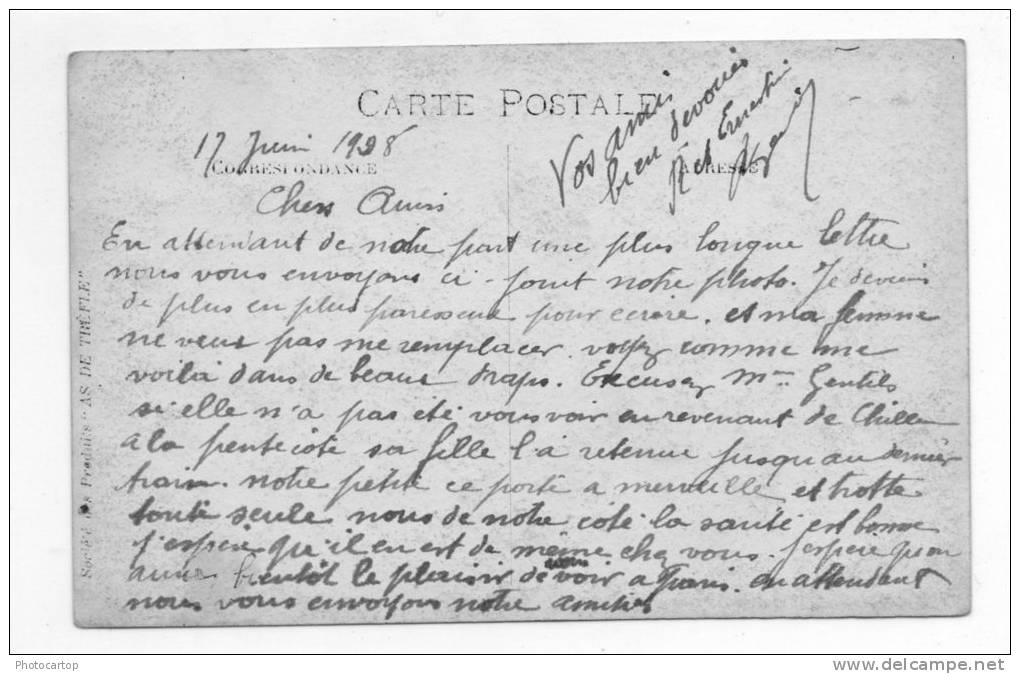 CARTE POSTALE
17 Juin 1928
CORRESPONDANCE
ADRESSE
Chers Amis
En attendant de notre part une plus longue lettre
nous vous envoyons ci-joint notre photo. Je deviens
de plus en plus paresseux pour ecrire. et ma femme
ne veut pas me remplacer. voyez comme me
voila dans de beaux draps. Excusez Mme Gentils
si elle n'a pas été vous voir en revenant de
a la pentecote sa fille l'a retenue jusqu'au dernier
train. notre petite ce porte a merveille et trotte
toute seule nous de notre coté la santé est bonne
j'espere qu'il en est de même chez vous. j'espere qu'on
aura bientôt le plaisir de vous voir a Paris. en attendant
nous vous envoyons notre amitiés
Vos amis
bien devoués
et Ernestine
Société des Produits "AS DE TRÈFLE"
Photocartop
www.delcampe.net